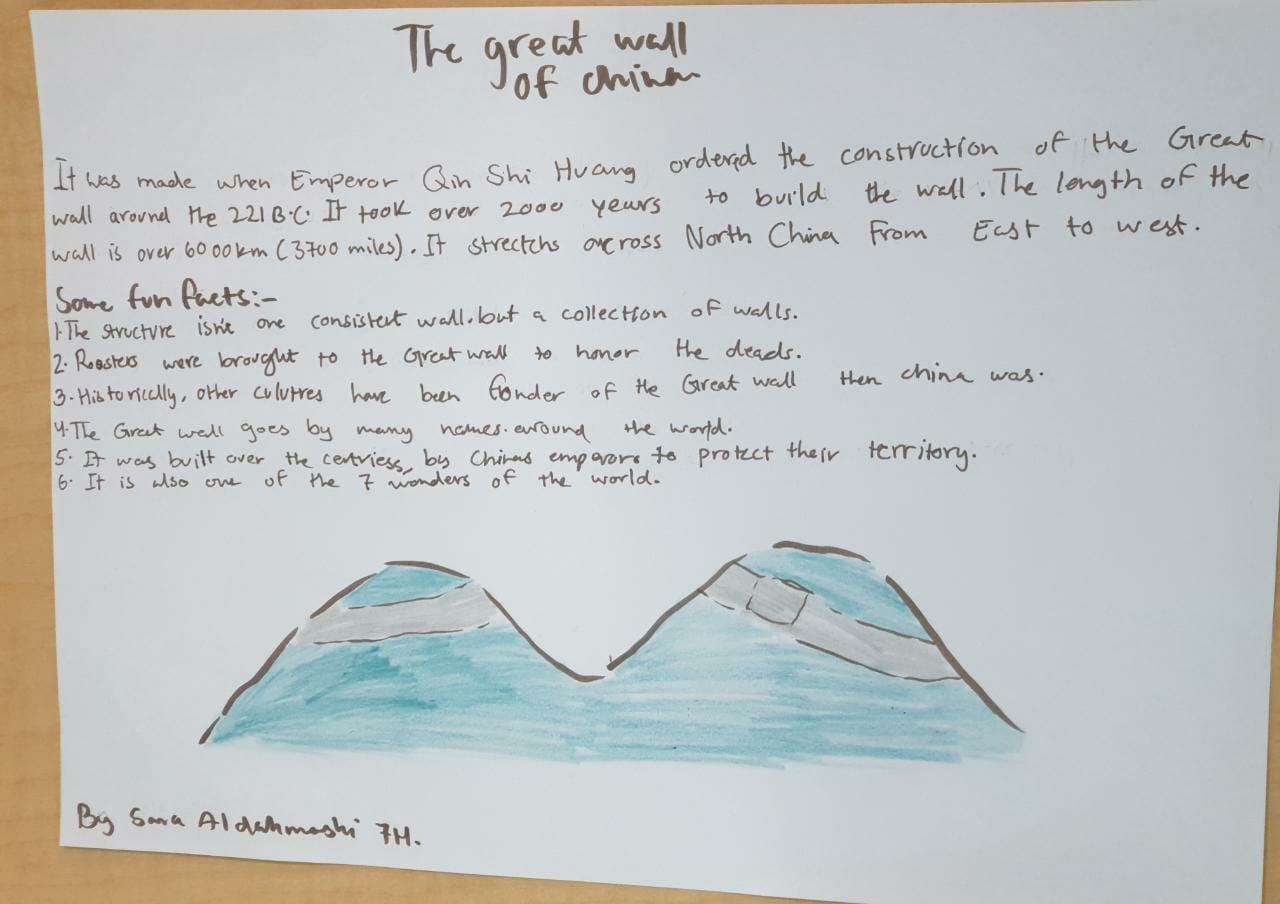 The great wall
of china
It was made when Emperor Qin Shi Huang ordered the construction of the Great
wall around the 221 B.C. It took over 2000 years to build the wall. The length of the
wall is over 6000km (3700 miles). It stretchs across North China From East to west.
Some fun facts:-
1. The structure isn't one consistent wall. but a collection of walls.
2. Roosters were brought to the Great wall to honor the deads.
3. Historically, other culutres have been fonder of the Great wall then china was.
4. The Great wall goes by many names. around the world.
5. It was built over the by Chinas emperors to protect their territory.
6. It is also one of the 7 wonders of the world.
By Sara Aldahmashi 7H.